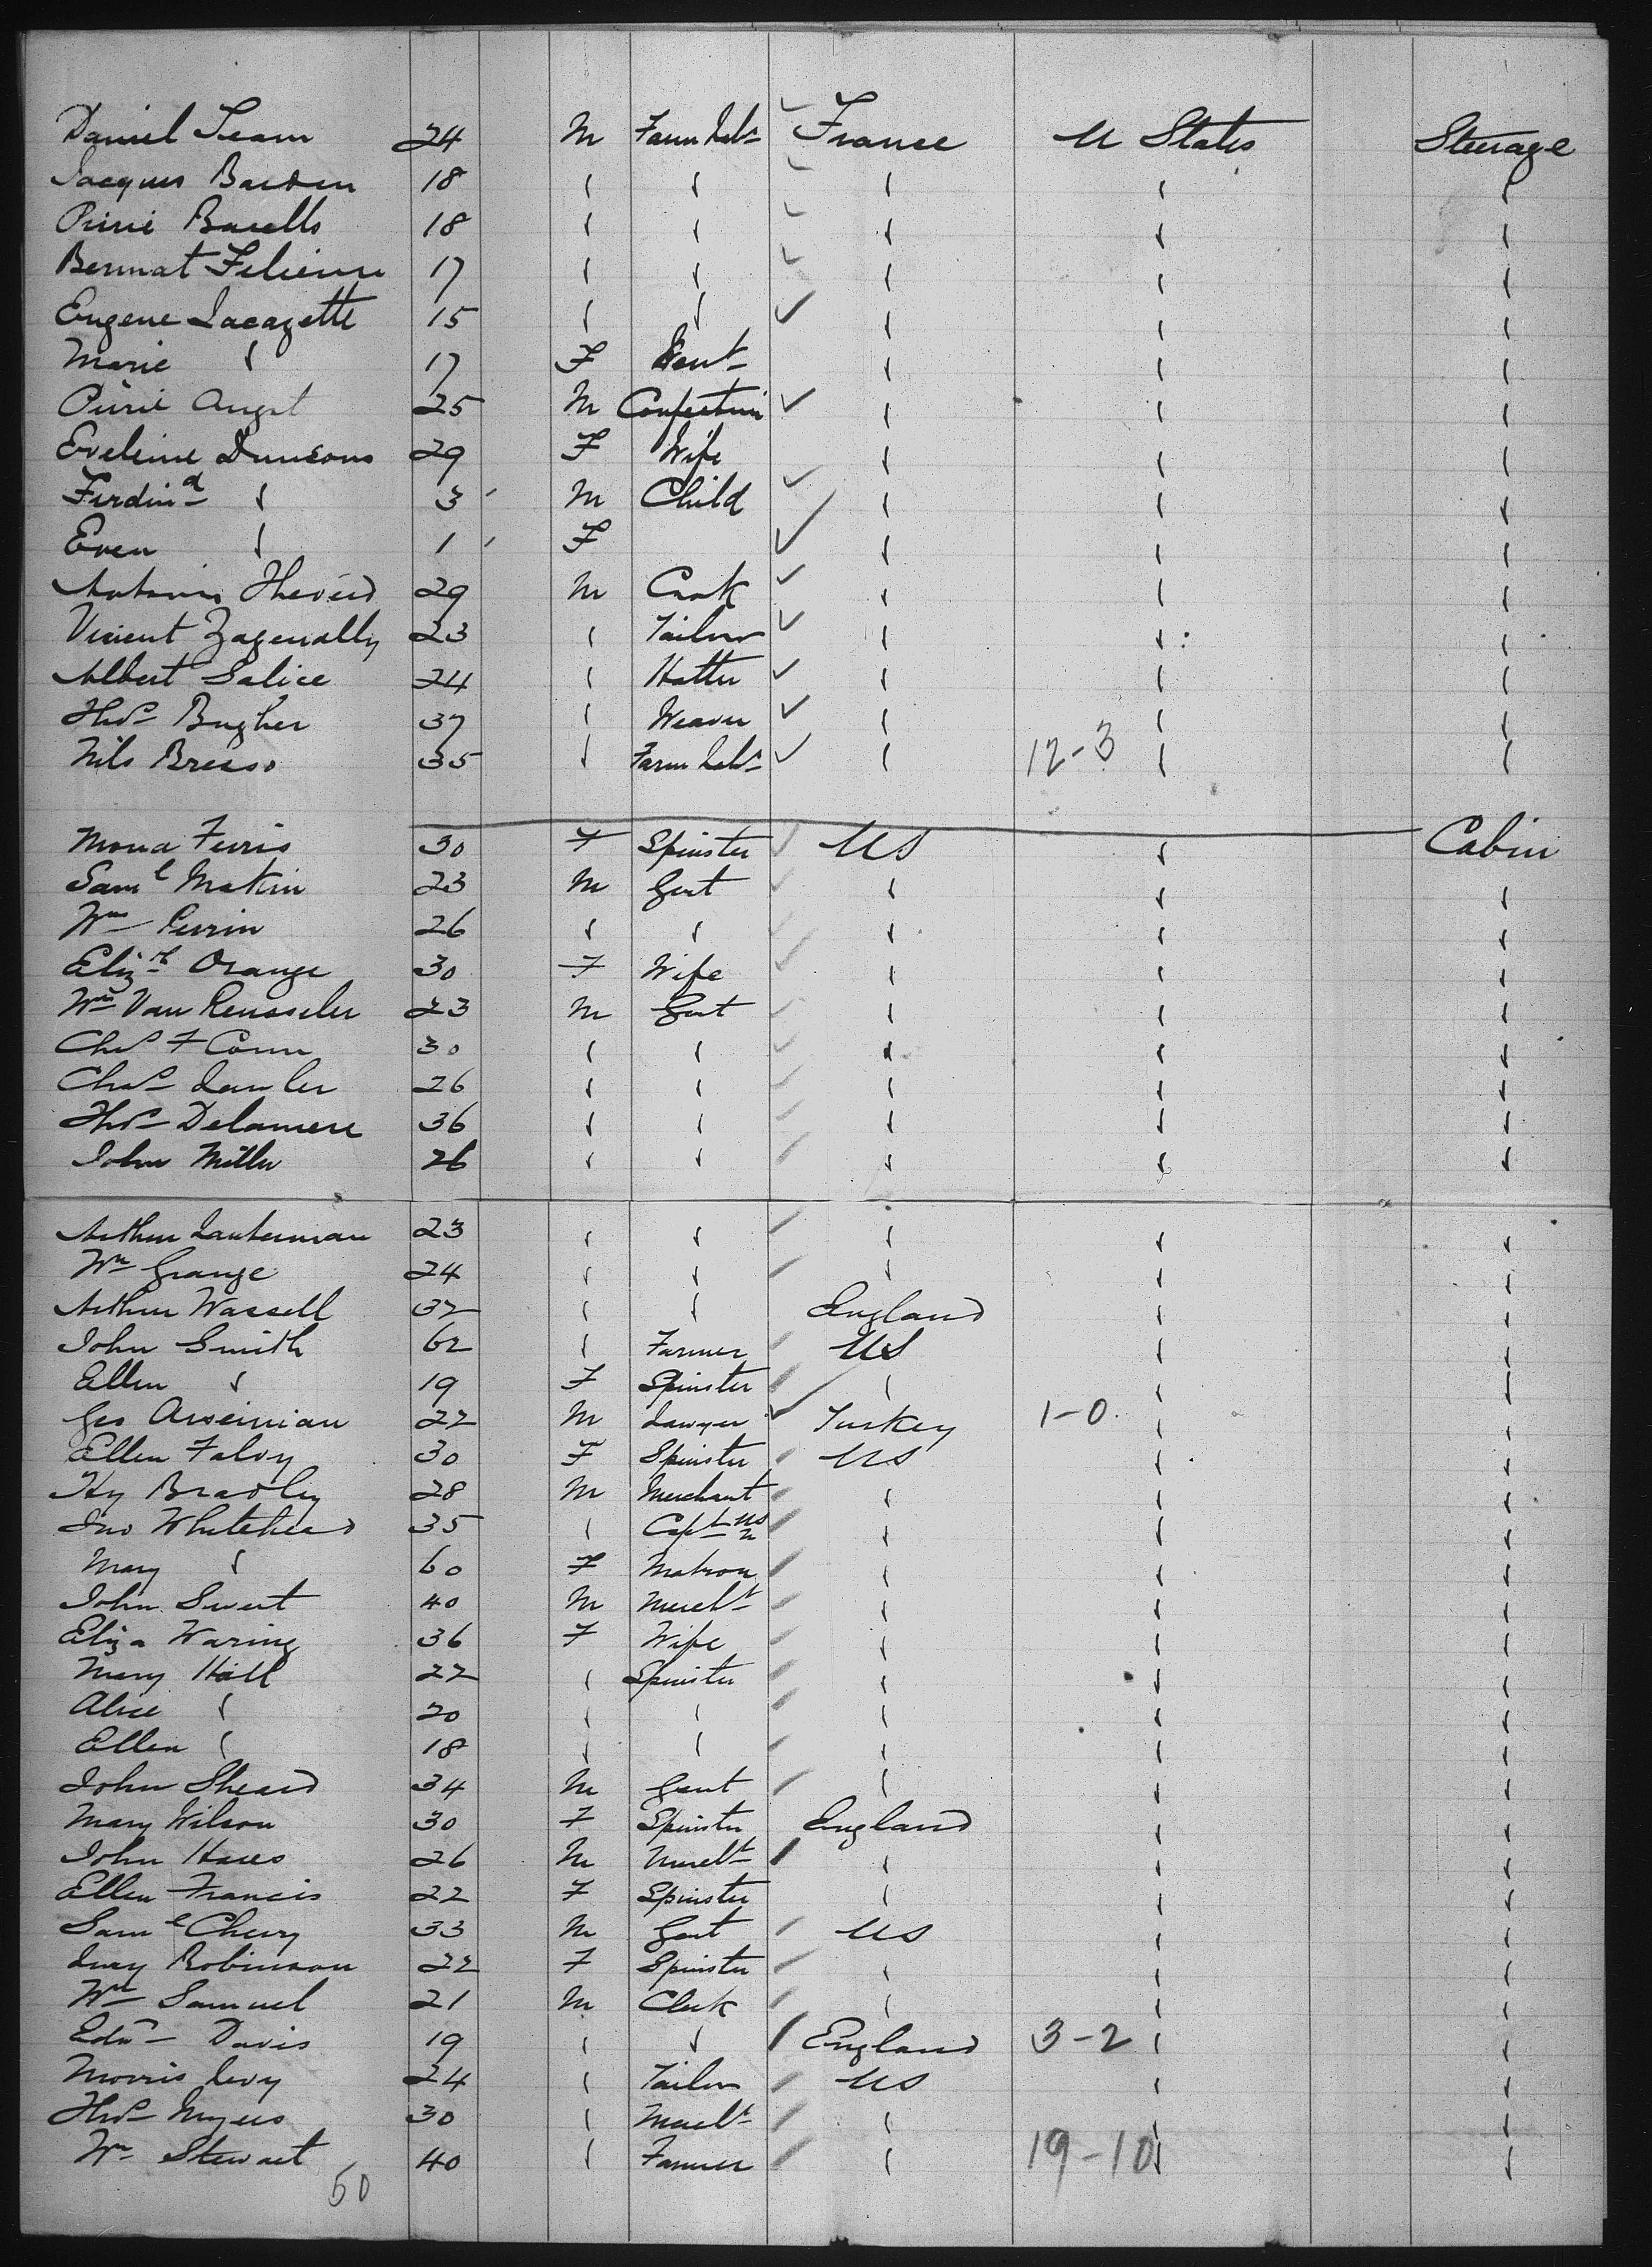 Daniel 24 M Farm Labr France U States Steerage
Jacques 18
18
17
Eugene Lacazette 15
Marie 17 F
25 M
Eveline 29 F Wife
Ferdind 3 M Child
1 F
29 M Cook
23 Tailor
Albert Salice 24 Hatter
Thos Bugher 37 Weaver
Nils 35 Farm Labr 12-3
Mona Ferris 30 F Spinster US Cabin
Saml Makin 23 M Gent
Wm Perrin 26
Elizth Orange 30 F Wife
Wm Van Rensseler 23 M Gent
Chas F Conn 30
Chas Lawler 26
Thos Delamere 36
John Miller 26
Arthur Lauterman 23
Wm Grange 24
Arthur Wassell 32 England
John Smith 62 Farmer US
Ellen 19 F Spinster
Geo Arseinian 22 M Lawyer Turkey 1-0
Ellen Falvy 30 F Spinster US
Hy Bradley 28 M Merchant
Jno Whitehead 35 Capt USN
Mary 60 F Matron
John Swert 40 M Mercht
Eliza Waring 36 F Wife
Mary Hall 22 Spinster
Alice 20
Ellen 18
John Sheard 34 M Gent
Mary Wilson 30 F Spinster England
John Hares 26 M Mercht
Ellen Francis 22 F Spinster
Saml Cherry 33 M Gent US
Lucy Robinson 22 F Spinster
Wm Samuel 21 M Clerk
Edwd Davis 19 England 3-2
Morris Levy 24 Tailor US
Thos Myers 30 Mercht
Wm Stewart 40 Farmer 19-10
50